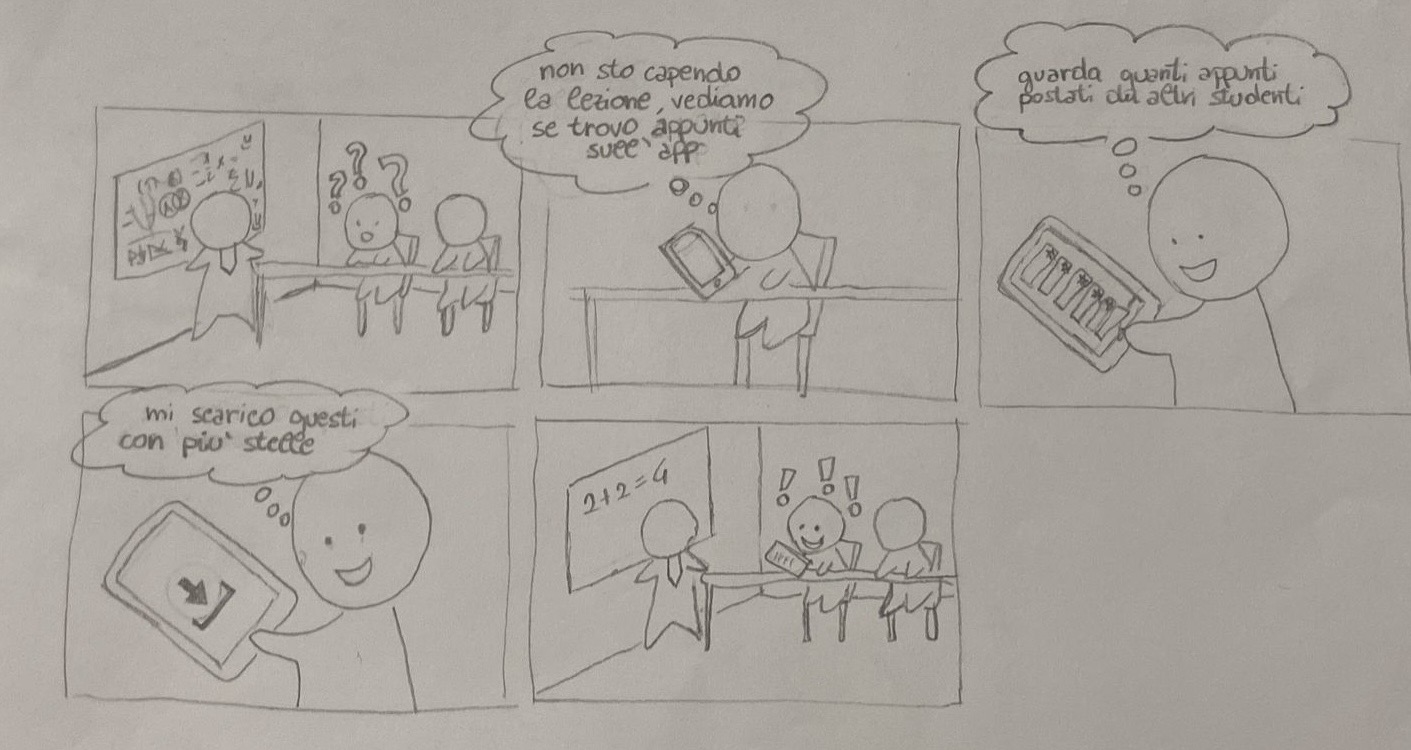 non sto capendo
la lezione, vediamo
se trovo appunti
sull' app
guarda quanti appunti
postati da altri studenti
mi scarico questi
con più stelle
2+2=4